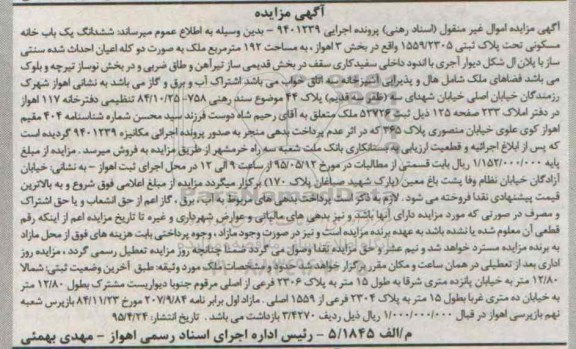 آگهی مزایده
آگهی مزایده اموال غیر منقول (اسناد رهنی) پرونده اجرایی ۹۴۰۱۲۳۹ - بدین وسیله به اطلاع عموم میرساند: ششدانگ یک باب خانه
مسکونی تحت پلاک ثبتی ۱۵۵۹/۲۳۰۵ واقع در بخش ۳ اهواز ، به مساحت ۱۹۲ مترمربع ملک به صورت دو کله اعیان احداث شده سنتی
ساز با پلان ال شکل دیوار آجری با اندود داخلی سفیدکاری سقف در بخش قدیمی ساز تیرآهن و طاق ضربی و در بخش نوساز تیرچه و بلوک
می باشد فضاهای ملک شامل هال و پذیرایی آشپزخانه سه اتاق خواب می باشد اشتراک آب و برق و گاز می باشد به نشانی اهواز شهرک
رزمندگان خیابان اصلی خیابان شهدای سه (ظفر سه قدیم) پلاک ۴۴ موضوع سند رهنی ۷۵۸- ۸۴/۱۰/۲۵ تنظیمی دفترخانه ۱۱۷ اهواز
در دفتر املاک ۲۳۳ صفحه ۱۲۵ ذیل ثبت ۵۲۷۲۶ ملک متعلق به آقای رحیم شاه دوست فرزند سید محسن شماره شناسنامه ۴۰۴ مقیم
اهواز کوی علوی خیابان منصوری پلاک ۳۶۵ که در اثر عدم پرداخت بدهی منجر به صدور پرونده اجرائی مکانیزه ۹۴۰۱۲۳۹ گردیده است
که پس از ابلاغ اجرائیه و قطعیت ارزیابی به بستانکاری بانک ملت شعبه سه راه خرمشهر از طریق مزایده به فروش میرسد . مزایده از مبلغ
پایه ۱/۱۵۲/۰۰۰/۰۰۰ ریال بابت قسمتی از مطالبات در مورخ ۹۵/۰۵/۱۲ از ساعت ۹ الی ۱۲ در محل اجرای ثبت اهواز - به نشانی: خیابان
آزادگان خیابان نظام وفا پشت باغ معین (پارک شهید صباغان پلاک ۱۷۰) برگزار میگردد مزایده از مبلغ اعلامی فوق شروع و به بالاترین
قیمت پیشنهادی نقدا فروخته می شود . لازم به ذکر است پرداخت بدهی های مربوط به آب، برق ، گاز اعم از حق انشعاب و یا حق اشتراک
و مصرف در صورتی که مورد مزایده دارای آنها باشد و نیز بدهی های مالیاتی و عوارض شهرداری و غیره تا تاریخ مزایده اعم از اینکه رقم
قطعی آن معلوم شده یا نشده باشد به عهده برنده مزایده است و نیز در صورت وجود مازاد ، وجوه پرداختی بابت هزینه های فوق از محل مازاد
به برنده مزایده مسترد خواهد شد و نیم عشر و حق مزایده نقدا وصول می گردد ضمنا چنانچه روز مزایده تعطیل رسمی گردد ، مزایده روز
اداری بعد از تعطیلی در همان ساعت و مکان مقرر برگزار خواهد شد حدود و مشخصات ملک مورد وثیقه: طبق آخرین وضعیت ثبتی: شمالا
۱۲/۸۰ متر به خیابان پانزده متری شرقا به طول ۱۵ متر به پلاک ۲۳۰۶ فرعی از اصلی مرقوم جنوبا دیواریست مشترک بطول ۱۲/۸۰ متر
به خیابان ده متری غربا بطول ۱۵ متر به پلاک ۲۳۰۴ فرعی از ۱۵۵۹ اصلی . مازاد اول برابر نامه ۲۰۷/۹/۸۴ مورخ ۸۴/۱۱/۲۳ بازپرس شعبه
نهم بازپرسی اهواز در قبال ۱/۰۰۰/۰۰۰/۰۰۰ ریال ذیل ردیف ۳/۴۲۷۰ بازداشت می باشد . تاریخ انتشار: ۹۵/۴/۲۴
م/الف ۵/۱۸۴۵ - رئیس اداره اجرای اسناد رسمی اهواز - مهدی بهمئی